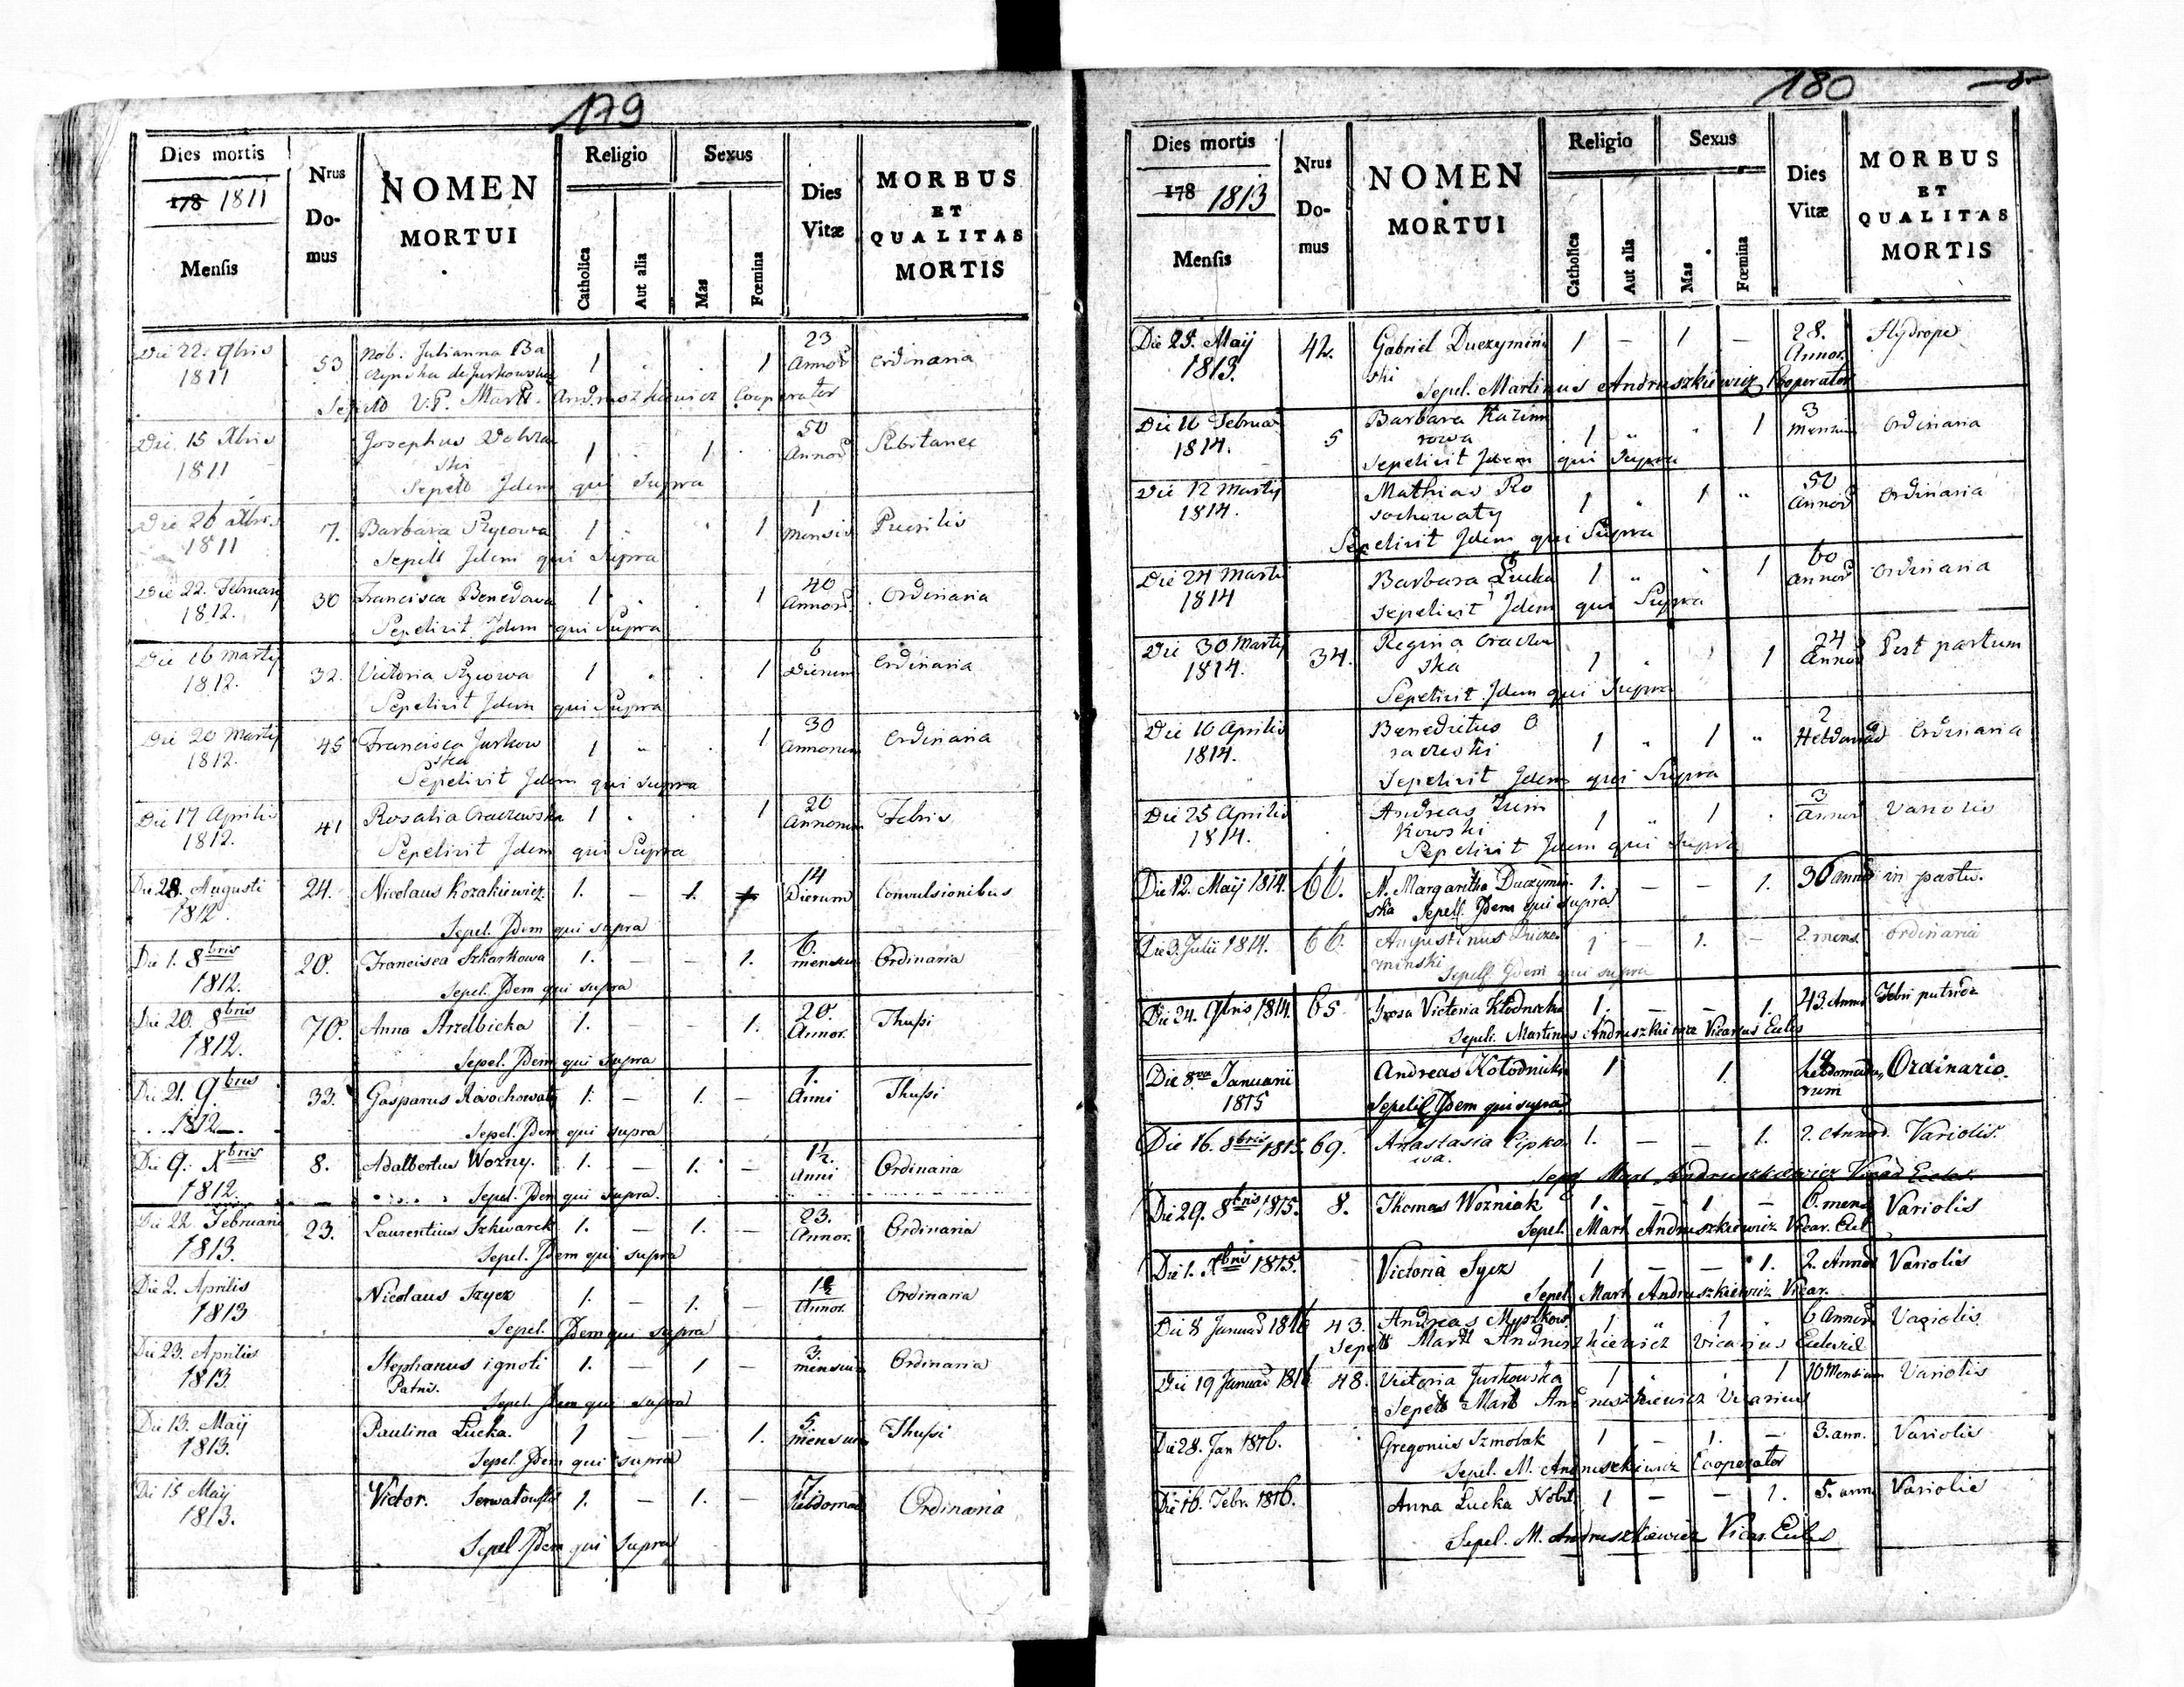 179
Dies mortis
178 1811
Mensis
Nrus Do-mus
NOMEN MORTUI
Religio
Catholica
Aut alia
Sexus
Mas
Fœmina
Dies Vitæ
MORBUS ET QUALITAS MORTIS
Die 22. 9bris 53 Nob. Julianna Ba 1 1 23 ordinaria
1811 de Jurkowska Annor
Martt. Andruszkiewicz Cooperator
Die 15 Xbris Josephus 1 1 50
1811 ski Annor
Sepelt Jdem qui Supra
Die 26 Xbris 7. Barbara 1 1 1 Puerilis
1811 Mensis
Sepelt Jdem qui Supra
Die 22. February 30 Francisca Benedowa 1 1 40 Ordinaria
1812. Annor
Sepelivit Jdem qui Supra
Die 16 Martij 32. Victoria 1 1 6 Ordinaria
1812. Dierum
Sepelivit Jdem qui Supra
Die 20 Martij 45 Francisca Jurkow 1 1 30 Ordinaria
1812. ska Annorum
Sepelivit Jdem qui supra
Die 17 Aprilis 41 Rosalia Oraczewska 1 1 20 Febris
1812. Annorum
Sepelivit Jdem qui Supra
Die 28. Augusti 24. Nicolaus Kozakiewicz 1. — 1. 14 Convulsionibus
1812. Dierum
Sepel. Jdem qui supra
Die 1. 8bris 20. Francisca Szkarkowa 1. — — 1. 6. Ordinaria
1812. mensium
Sepel. Jdem qui supra
Die 20. 8bris 70. Anna 1. — — 1. 20. Thussi
1812. Annor.
Sepel. Jdem qui supra
Die 21. 9bris 33. Gasparus Rosochowaty 1. — 1. — 1. Thussi
1812 Anni
Sepel. Jdem qui supra
Die 9. Xbris 8. Adalbertus Wozny. 1. — 1. — 1½ Ordinaria
1812. Anni
Sepel. Jdem qui supra.
Die 22. Februarii 23. Laurentius Szkwarek 1. — 1. — 23. Ordinaria
1813. Annor.
Sepel. Jdem qui supra
Die 2. Aprilis Nicolaus Szycz 1. — 1. — Ordinaria
1813 Annor.
Sepel. Jdem qui supra
Die 23. Aprilis Stephanus ignoti 1. — 1 — 3. Ordinaria
1813. Patris. mensium
Sepel. Jdem qui supra
Die 13. Maij Paulina Łucka. 1 — — 1. 5. Thussi
1813. mensium
Sepel. Jdem qui supra
Die 15 Maij Victor. 1. — 1. — Hebdomad Ordinaria
1813.
Sepel Jdem qui Supra
180
Dies mortis
178 1813
Mensis
Nrus Do-mus
NOMEN MORTUI
Religio
Catholica
Aut alia
Sexus
Mas
Fœmina
Dies Vitæ
MORBUS ET QUALITAS MORTIS
Die 25. Maij 42. Gabriel Duczymin 1 — 1 — 28. Hydrope
1813. ski Annor.
Sepel. Martinus Andruszkiewicz Cooperator
5 Barbara Kazim 1 „ 1 3 Ordinaria
1814. rowa Mensium
Sepelivit Jdem qui Supra
Die 12 Martij Mathias Ro 1 „ 1 „ 50 Ordinaria
1814. sochowaty Annor
Sepelivit Jdem qui Supra
Die 24 Martii Barbara Łucka 1 „ 1 60 Ordinaria
1814 Annor
Sepelivit Jdem qui Supra
Die 30 Martij 34. Regina Oraczew 1 1 24 Post partum
1814. ska Annor
Sepelivit Jdem qui Supra
Die 10 Aprilis Benedictus O 1 „ 1 „ 2 Ordinaria
1814. raczeski Hebdomad
Sepelivit Jdem qui Supra
Die 25 Aprilis Andreas 1 „ 1 3 Variolis
1814. kowski Annor
Sepelivit Jdem qui Supra
Die 12. Maij 1814. 66. N. Margaritha Duczymin- 1. — — 1. 30 annor in partu.
ska Sepel. Jdem qui supra
Die 3. Julii 1814. 66. Augustinus Duczy- 1 — 1. — 2. mens. ordinaria
minski Sepel. Jdem qui supra
Die 24. 9bris 1814 65 Victoria 1. — — 1. 43. Annor Febri putrida
Sepeli. Martinus Andruszkiewicz Vicarius Eccles
Die 8va Januarii Andreas 1 1. hebdomada- Ordinario.
1815 rum
Sepelit Jdem qui supra
Die 16. 8bris 1815. 69. Anastasia Lipko- 1. — — 1. 2. Annor. Variolis.
wa.
Sepel Mart Andruszkiewicz
Die 29. 8bris 1815. 8. Thomas Wozniak 1. — 1 — 6. mens Variolis
Sepel. Mart. Andruszkiewicz Vicar. Ecl
Die 1. Xbris 1815. Victoria Sycz 1 — — 1. 2. Annor Variolis
Sepel. Mart. Andruszkiewicz Vicar.
Die 8 Januar 1816 43. Andreas Myszkow 1 „ 1 6 Annor Variolis.
Sepelt Martt Andruszkiewicz Vicarius
Die 19 Januar 1816 48. Victoria Jurkowska 1 1 10 Mensium Variolis
Sepelt Martt Andruszkiewicz Vicarius
Die 28. Jan 1816. Gregorius Szmolak 1 — 1. — 3. ann. Variolis
Sepel. M. Andruszkiewicz Cooperator
Die 16. Febr. 1816. Anna Łucka Nobil. 1 — — 1. 5. ann Variolis
Sepel. M. Andruszkiewicz Vicar. Eccles